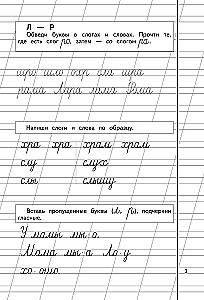 Л — Р
Обведи буквы в слогах и словах. Прочти те,
где есть слог ра, затем — со слогом ра.
шро шло охр сла шра
рама Лара лама Рома
Напиши слоги и слова по образцу.
хра хра храм храм
слу слух
слы слышу
Вставь пропущенные буквы (л, р), подчеркни
гласные.
У мамы мы-о.
Мама мы-а Ла-у
хо-ошо.
3